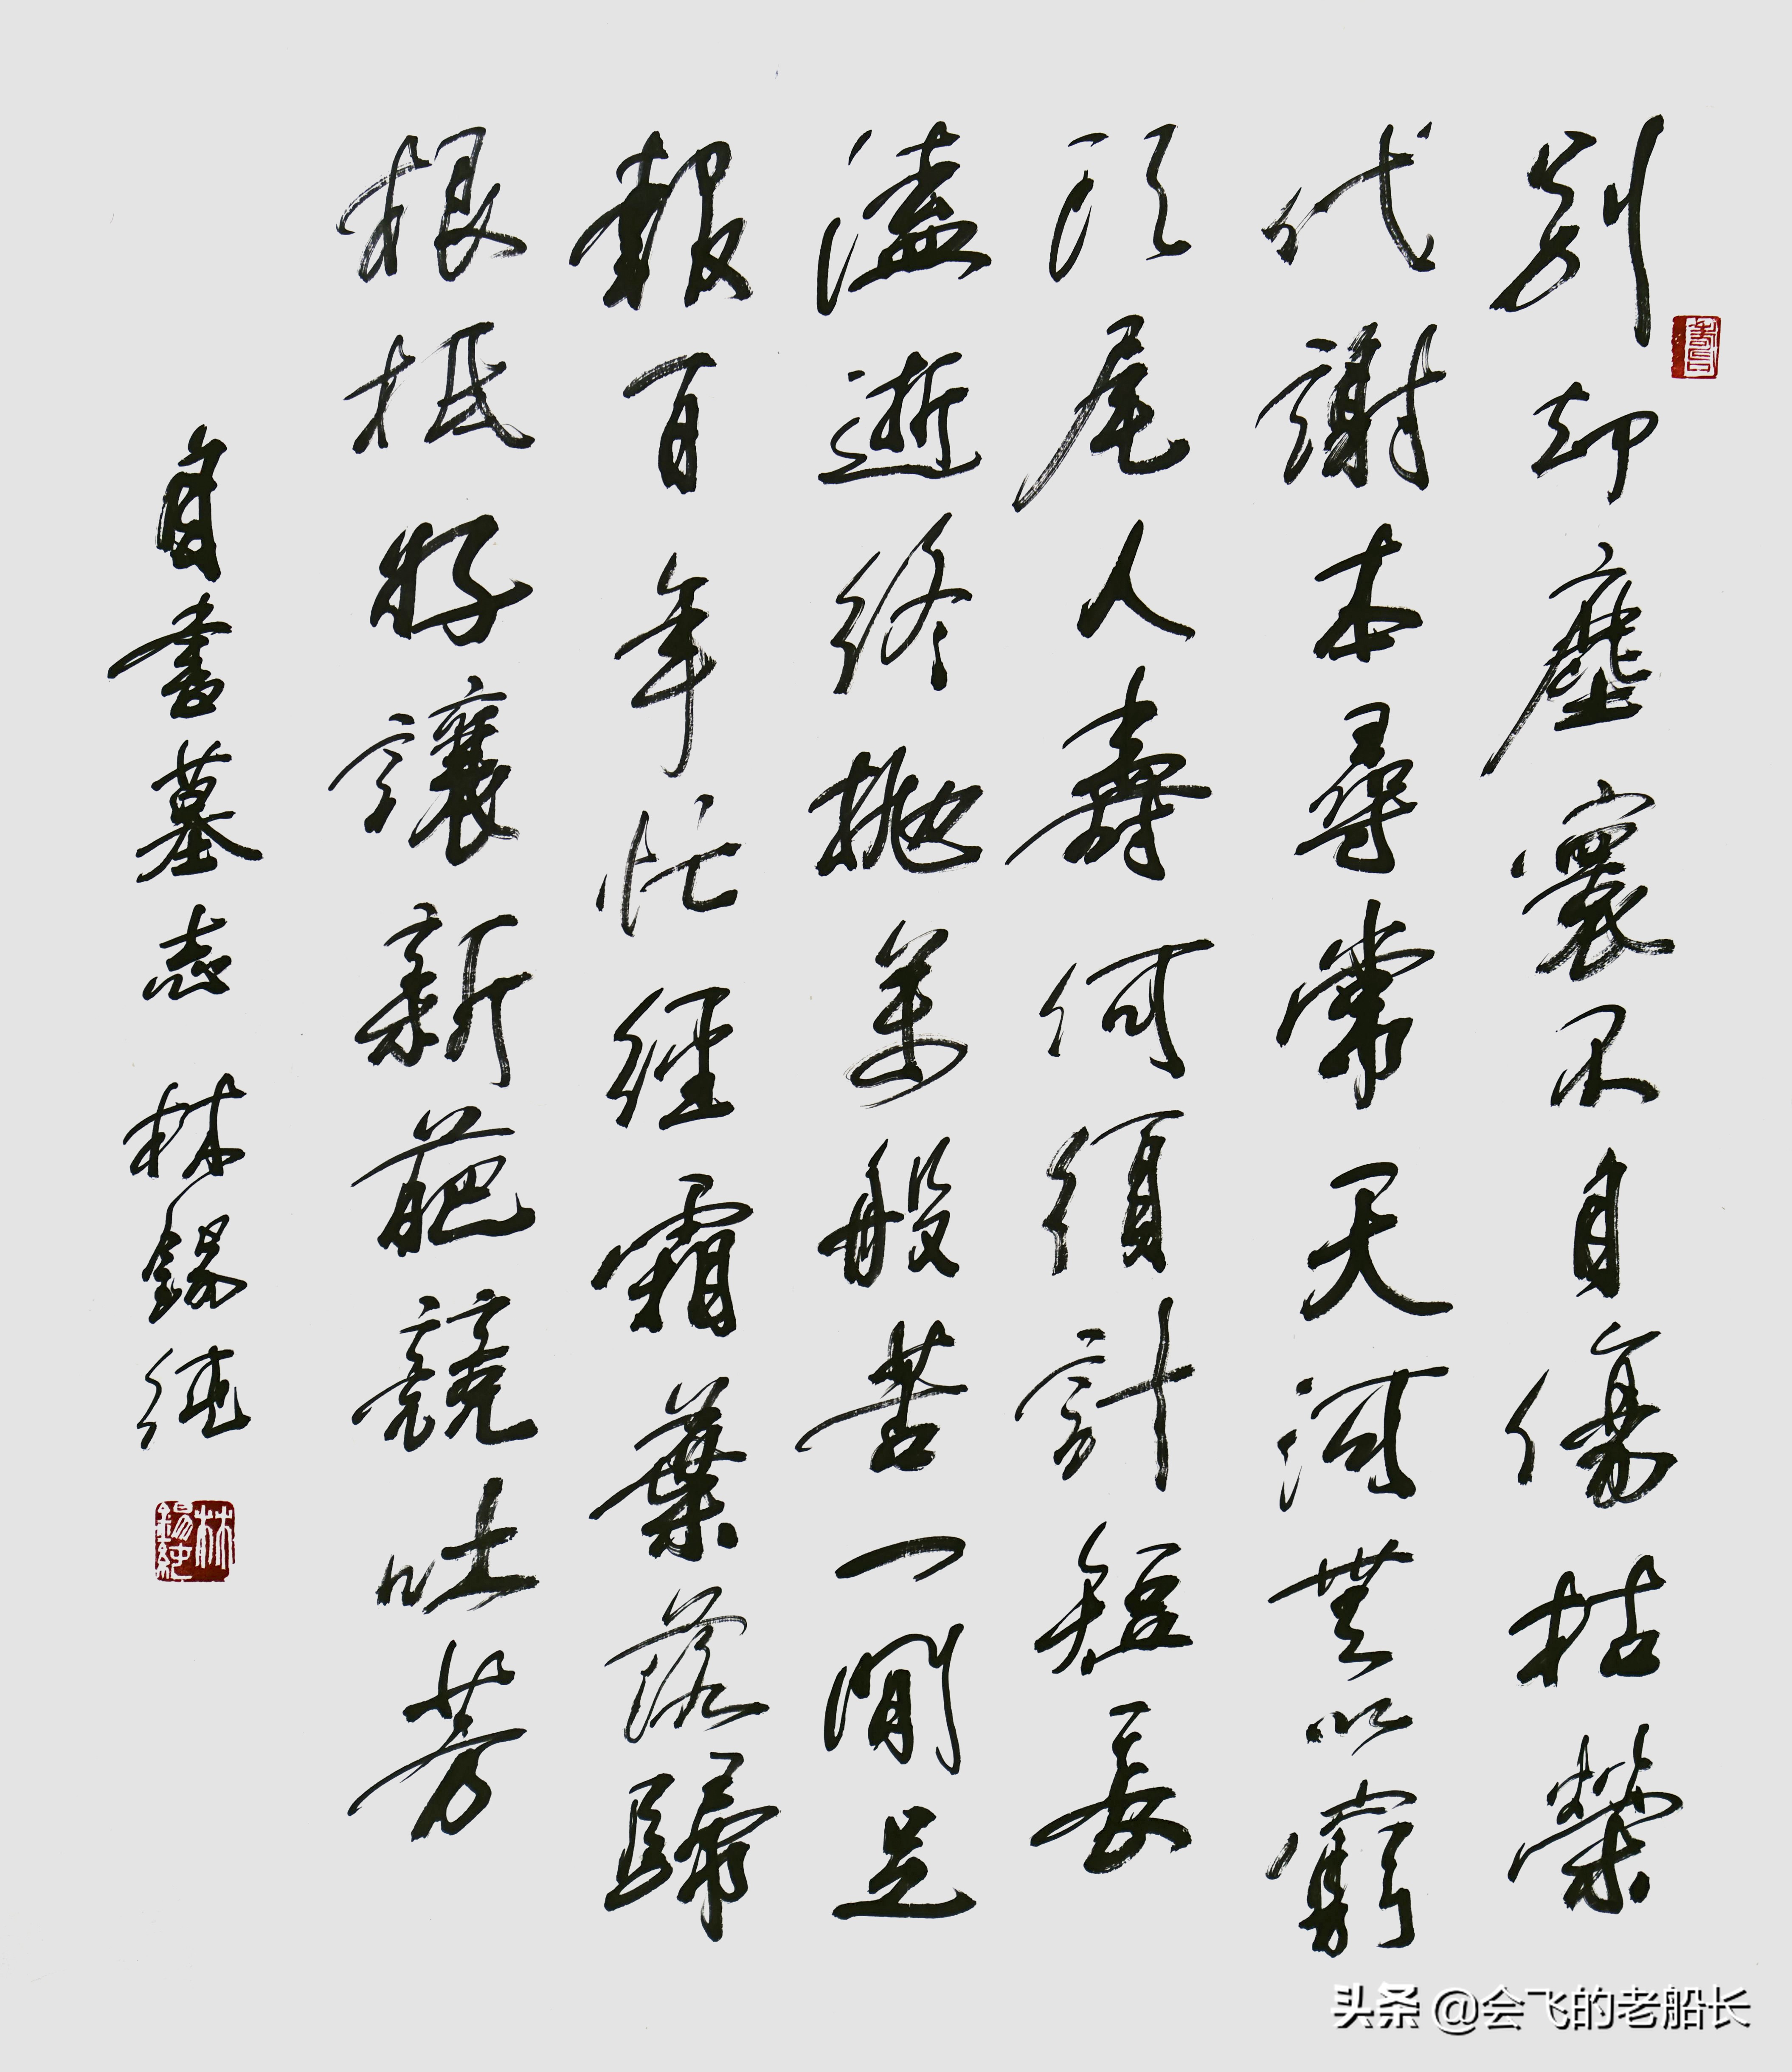 別却塵寰不自傷枯榮
代謝本尋常天河無以窮
頭尾人壽何須計短長
溘逝終拋萬般苦一閒足
報百年忙經霜葉落歸
根柢好讓新葩競吐芳
自書墓志 林錫純
林錫純
头条 @会飞的老船长